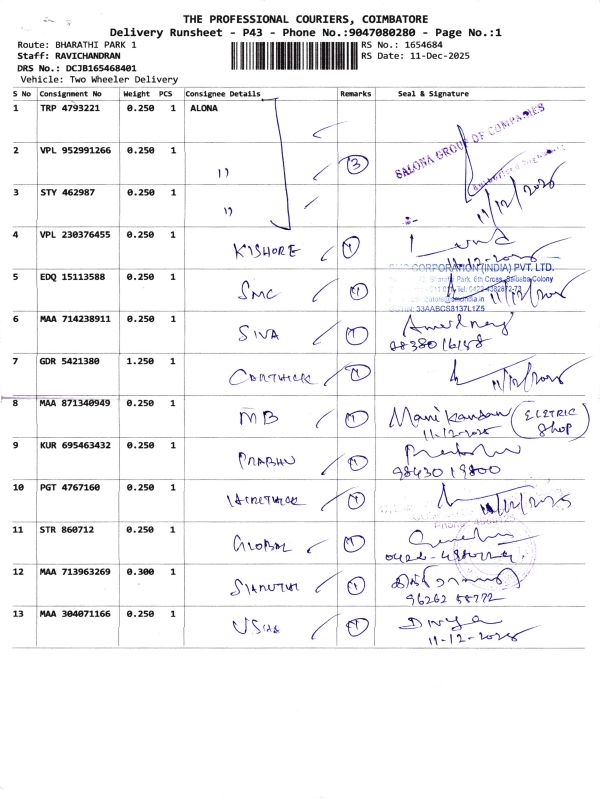 THE PROFESSIONAL COURIERS, COIMBATORE
Delivery Runsheet - P43 - Phone No.:9047080280 - Page No.:1
Route: BHARATHI PARK 1 RS No.: 1654684
Staff: RAVICHANDRAN RS Date: 11-Dec-2025
DRS No.: DCJB165468401
Vehicle: Two Wheeler Delivery
S No Consignment No Weight PCS Consignee Details Remarks Seal & Signature
1 TRP 4793221 0.250 1 ALONA
SALONA GROUP OF COMPANIES
2 VPL 952991266 0.250 1 ,, 3
3 STY 462987 0.250 1 ,, 11/12/2025
4 VPL 230376455 0.250 1 KISHORE 1
11-12-2025
5 EDQ 15113588 0.250 1 SMC 1 CORPORATION (INDIA) PVT. LTD.
Park, 6th Cross, Saibaba Colony
11/12/2025
33AABCS8137L1Z5
6 MAA 714238911 0.250 1 SIVA 1
7 GDR 5421380 1.250 1 1 11/12/2025
8 MAA 871340949 0.250 1 MB 1 Manikandan (ELETRIC Shop)
11-12-2025
9 KUR 695463432 0.250 1 PRABHU 1
98430 19800
10 PGT 4767160 0.250 1 1 11/12/2025
11 STR 860712 0.250 1 GLOBAL 1
12 MAA 713963269 0.300 1 1
96262 58772
13 MAA 304071166 0.250 1 USHA 1 Divya
11-12-2025